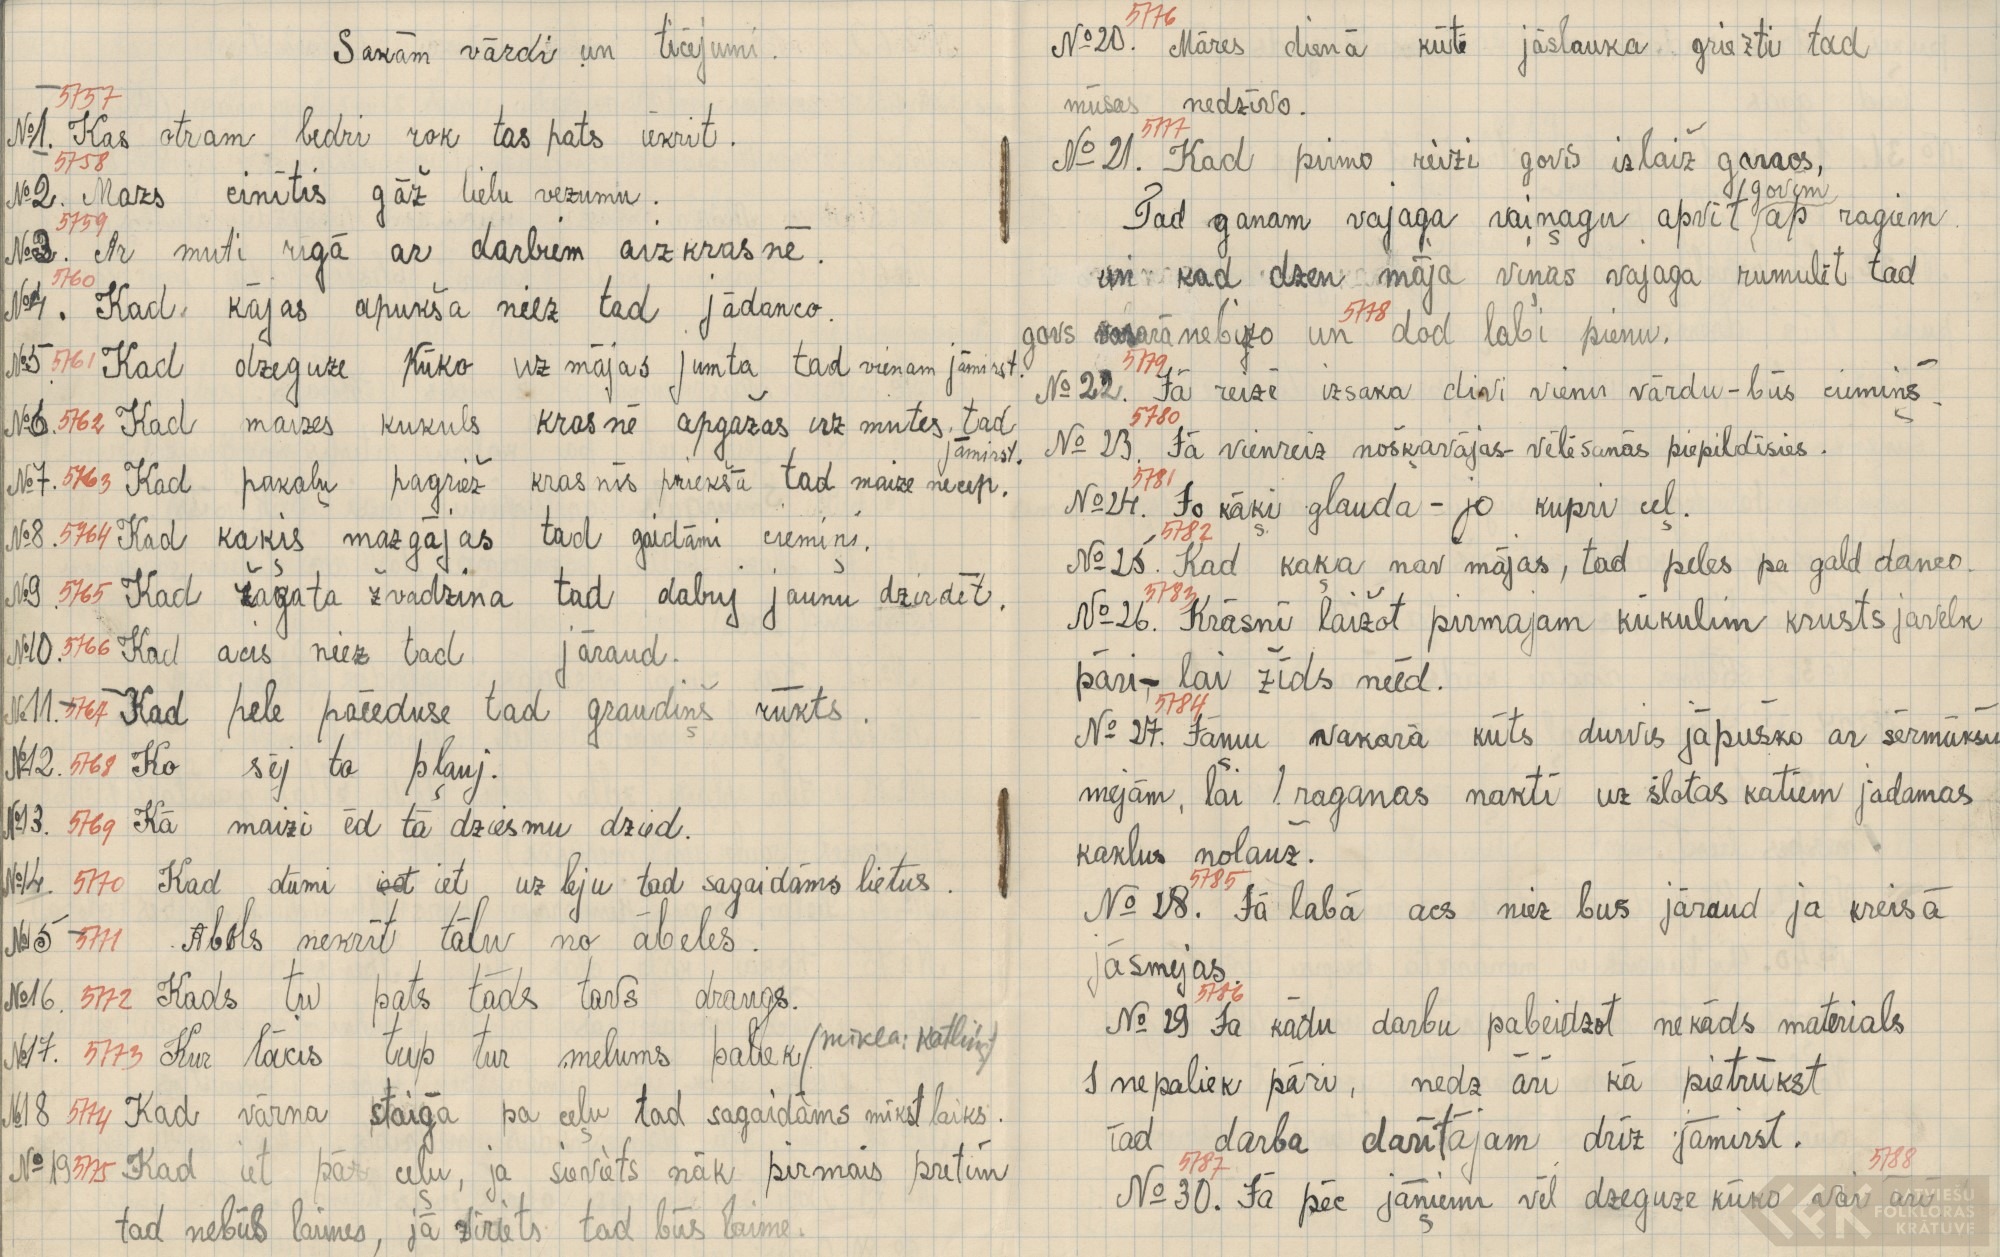 Sakām vārdi un ticējumi.
5757
№1. Kas otram bedri rok tas pats iekrīt.
5758
№2. Mazs cinītis gāž lielu vezumu.
5759
№3. Ar muti rīgā ar darbiem aizkrasnē.
5760
№4. Kad kājas apukša niez tad jādanco.
№5 5761 Kad dzeguze kūko uz mājas jumta tad vienam jāmirst.
№6. 5762 Kad maizes kukuls krasnē apgāžas uz mutes, tad
jāmirst.
№7. 5763 Kad pakaļu pagriež krasnīs priekšā tad maize necep.
№8. 5764 Kad kaķis mazgājas tad gaidāmi ciemiņi.
№9. 5765 Kad žagata žvadzina tad dabuj jaunu dzirdēt.
№10. 5766 Kad acis niez tad jāraud.
№11. 5767 Kad pele paēeduse tad graudiņš rūkts.
№12. 5768 Ko sēj to pļauj.
№13. 5769 Kā maizi ēd tā dziesmu dzied.
№14. 5770 Kad dūmi iet uz leju tad sagaidāms lietus.
№15 5771 Abols nekrīt tālu no ābeles.
№16. 5772 Kads tu pats tāds tavs draugs.
№17. 5773 Kur lācis tup tur melums paliek (mīkla: Katliņš)
№18 5774 Kad vārna staigā pa ceļu tad sagaidāms mīkst laiks.
№19 5775 Kad iet pār ceļu, ja sieviets nāk pirmais pretim
tad nebūs laimes, jā virīets tad būs laime.
5776
№20. Māres dienā kūtē jāslauka griezti tad
mūsas nedzīvo.
5777
№21. Kad pirmo reizi govis izlaiž ganos,
govīm
Tad ganam vajaga vaiņagu apvīt ap ragiem
un kad dzen māja viņas vajaga rumulēt tad
5778
govs vasarā nebizo un dod labi pienu.
5779
№22. Jā reizē izsaka divi vienu vārdu – būs ciemiņš.
5780
№23. Jā vienreiz nošķavājas – vēlēšanās piepildīsies.
5781
№24. Jo kāķi glauda – jo kupri ceļ.
5782
№25. Kad kaķa nav mājās, tad peles pa gald danco.
5783
№26. Krāsnī laižot pirmajam kūkulim krusts javelk
pāri – lai žīds neēd.
5784
№27. Jāņu vakarā kūts durvis jāpuško ar sērmūkšu
mejām, lai raganas naktī uz slotas kātiem jādamas
kaklus nolauž.
5785
№28. Jā labā acs niez bus jāraud ja kreisā
jāsmejas.
5786
№29 Ja kādu darbu pabeidzot nekāds materials
nepaliek pāri, nedz ārī kā pietrūkst
tad darba darītājam drīz jāmirst.
5787 5788
№30. Jā pēc jāņiem vēl dzeguze kūko vai ārī
LATVIEŠU
FOLKLORAS
KRĀTUVE